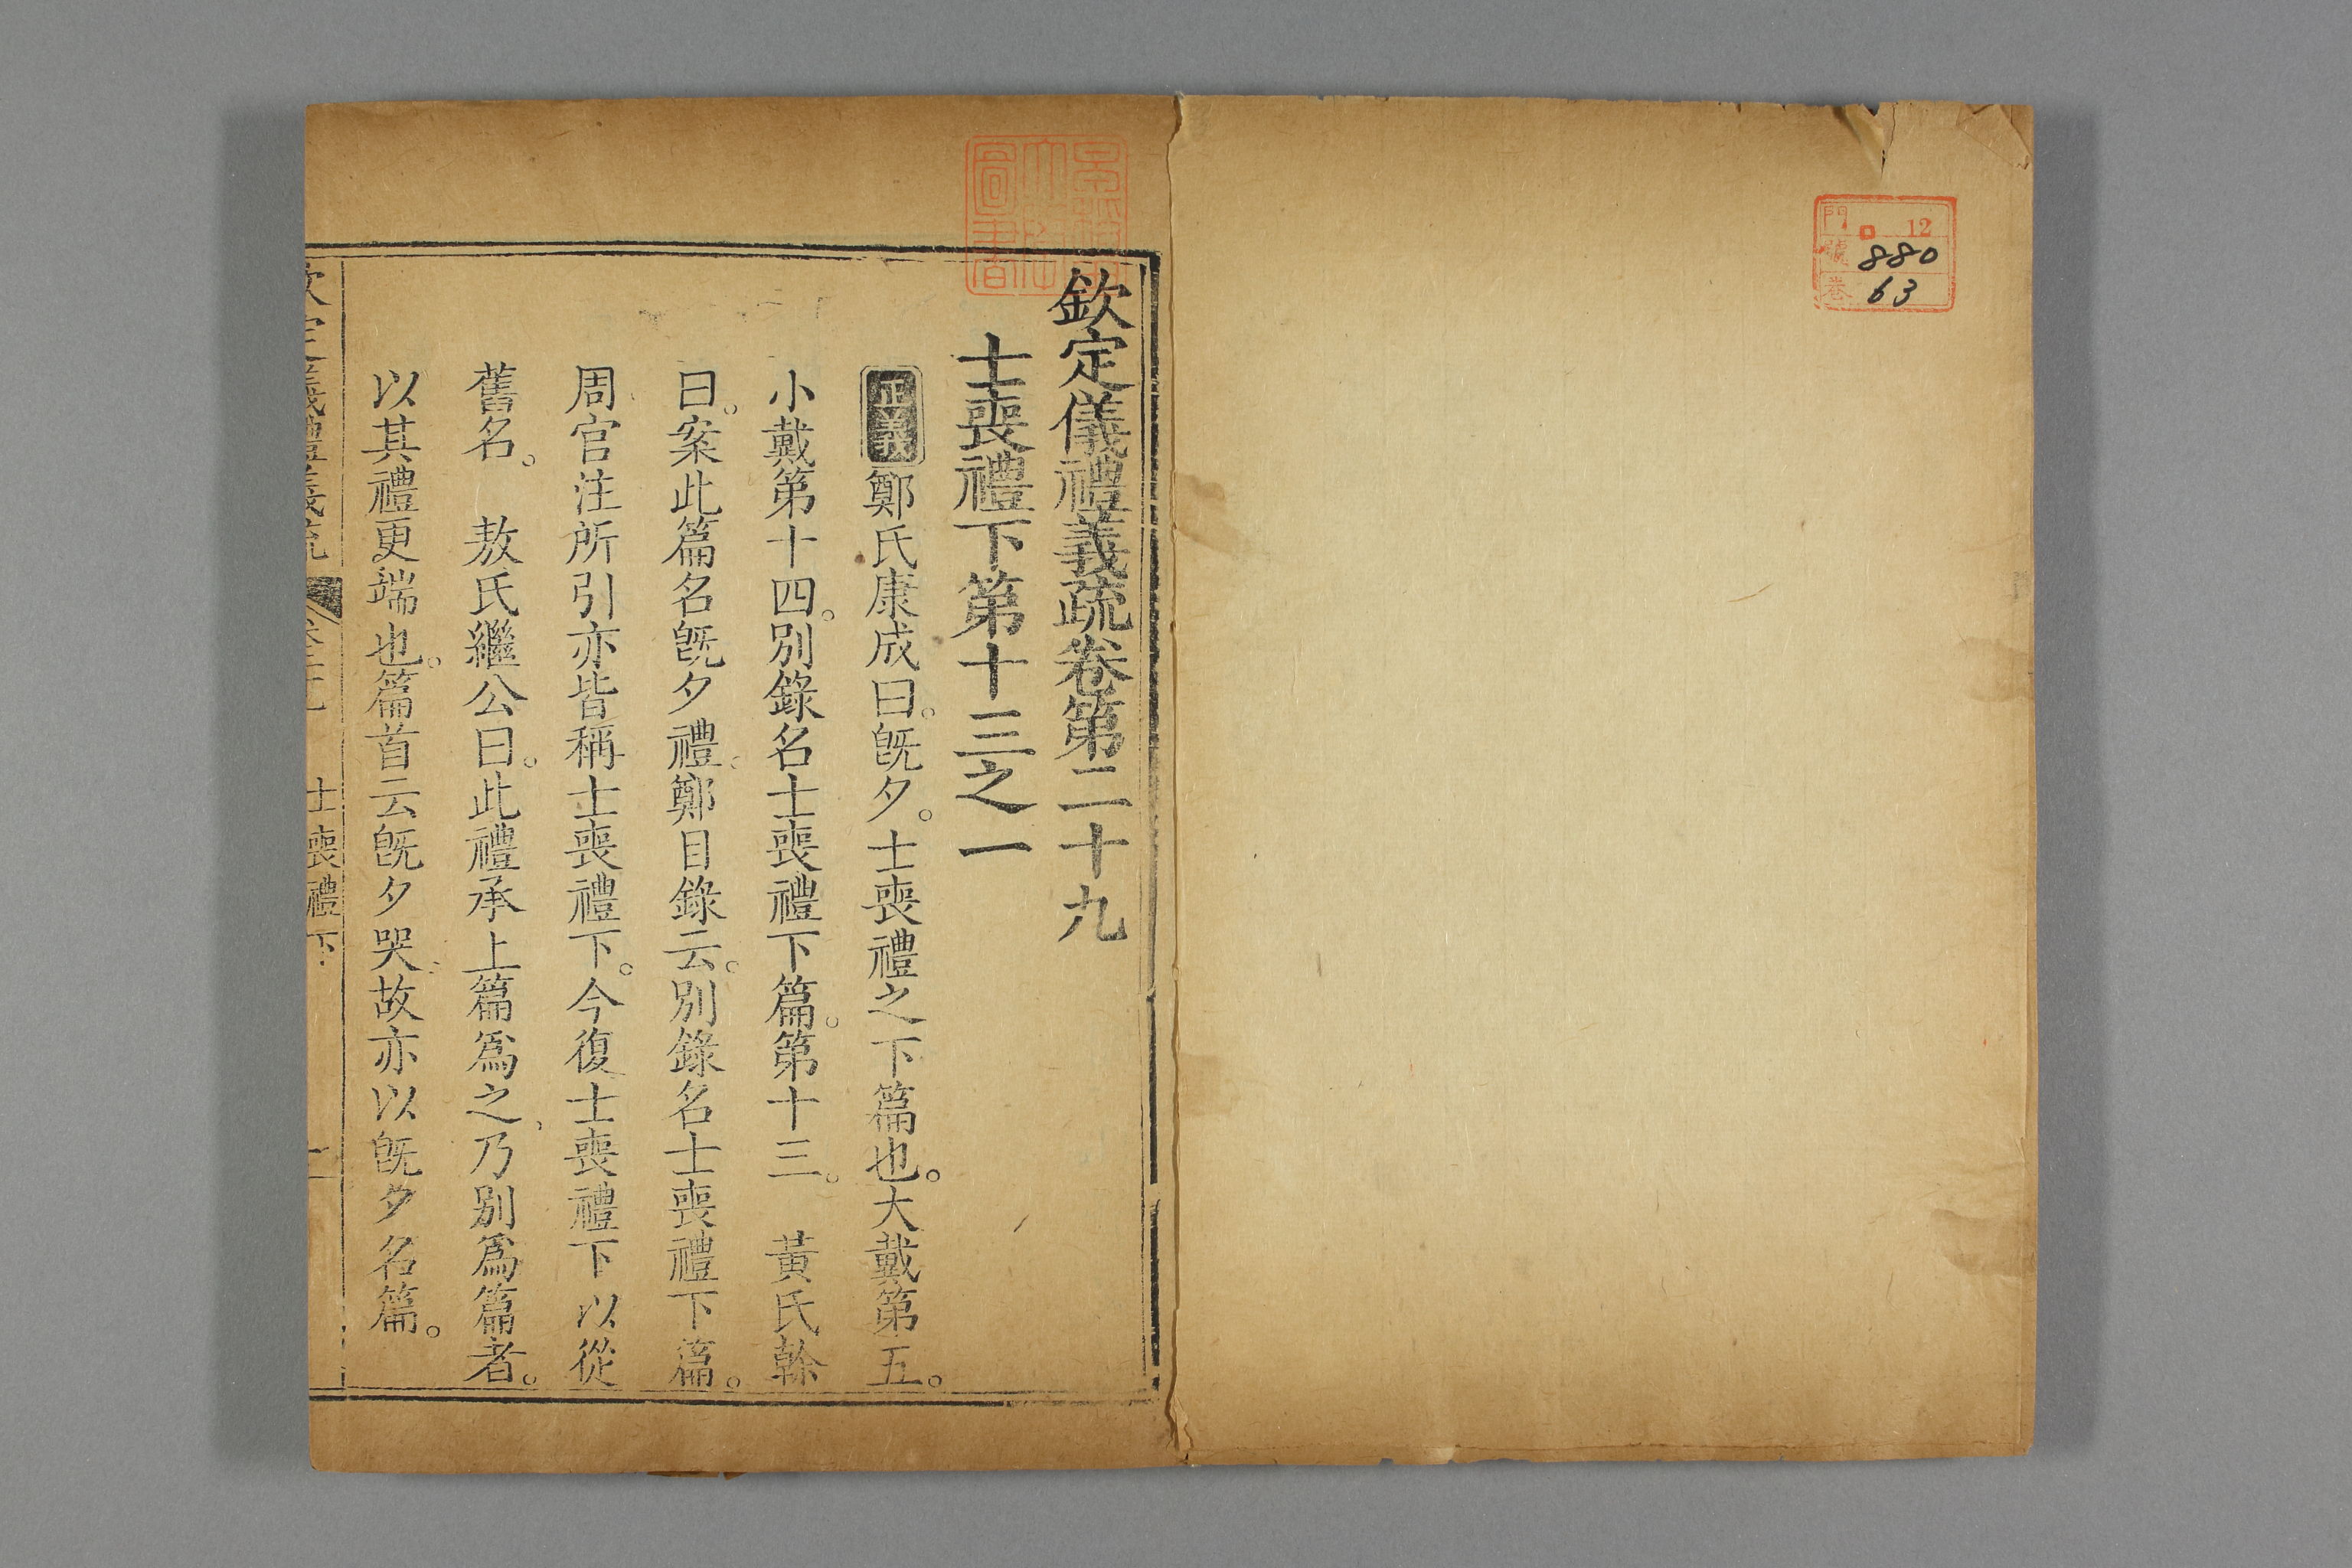 門 12
號 880
卷 63
欽定儀禮義疏卷第二十九
士喪禮下第十三之一
正義鄭氏康成曰。既夕。士喪禮之下篇也。大戴第五。
小戴第十四。別錄名士喪禮下篇。第十三。　黃氏榦
曰。案此篇名既夕禮。鄭目錄云。別錄名士喪禮下篇。
周官注所引亦皆稱士喪禮下。今復士喪禮下以從
舊名。　敖氏繼公曰。此禮承上篇爲之、乃別爲篇者。
以其禮更端也。篇首云既夕哭、故亦以既夕名篇。
欽定儀禮義疏　士喪禮下